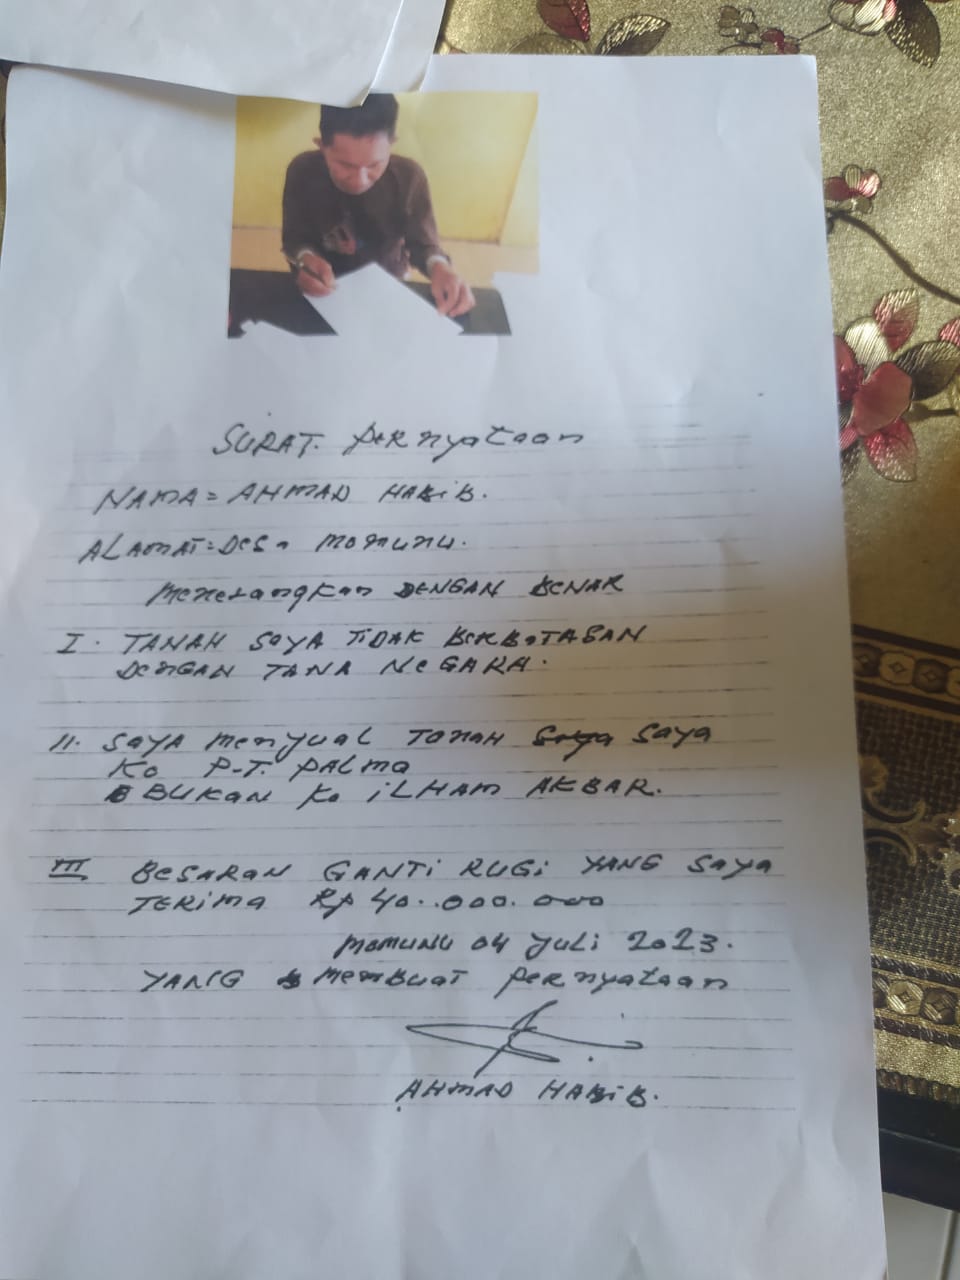 SURAT. PERnyataan
NAMA = AHMAD HABiB.
ALAMAT = DESA MOMUNU.
MENERangKan DENGAN BENAR
I. TANAH SAYA TiDAK BERBATASAN
DENGAN TANA NEGARA.
II. SAYA MEnyUAL TANAH Saya SAYA
KE P-T. PALMA
BUKAN KE iLHAM AKBAR.
III BESARAN GANTi RUGi YANG SAYA
TERiMA Rp 40..000.000
MOMUNU 04 JULi 2023.
YANG MEMBUAT PERnyataan
AHMAD HABiB.